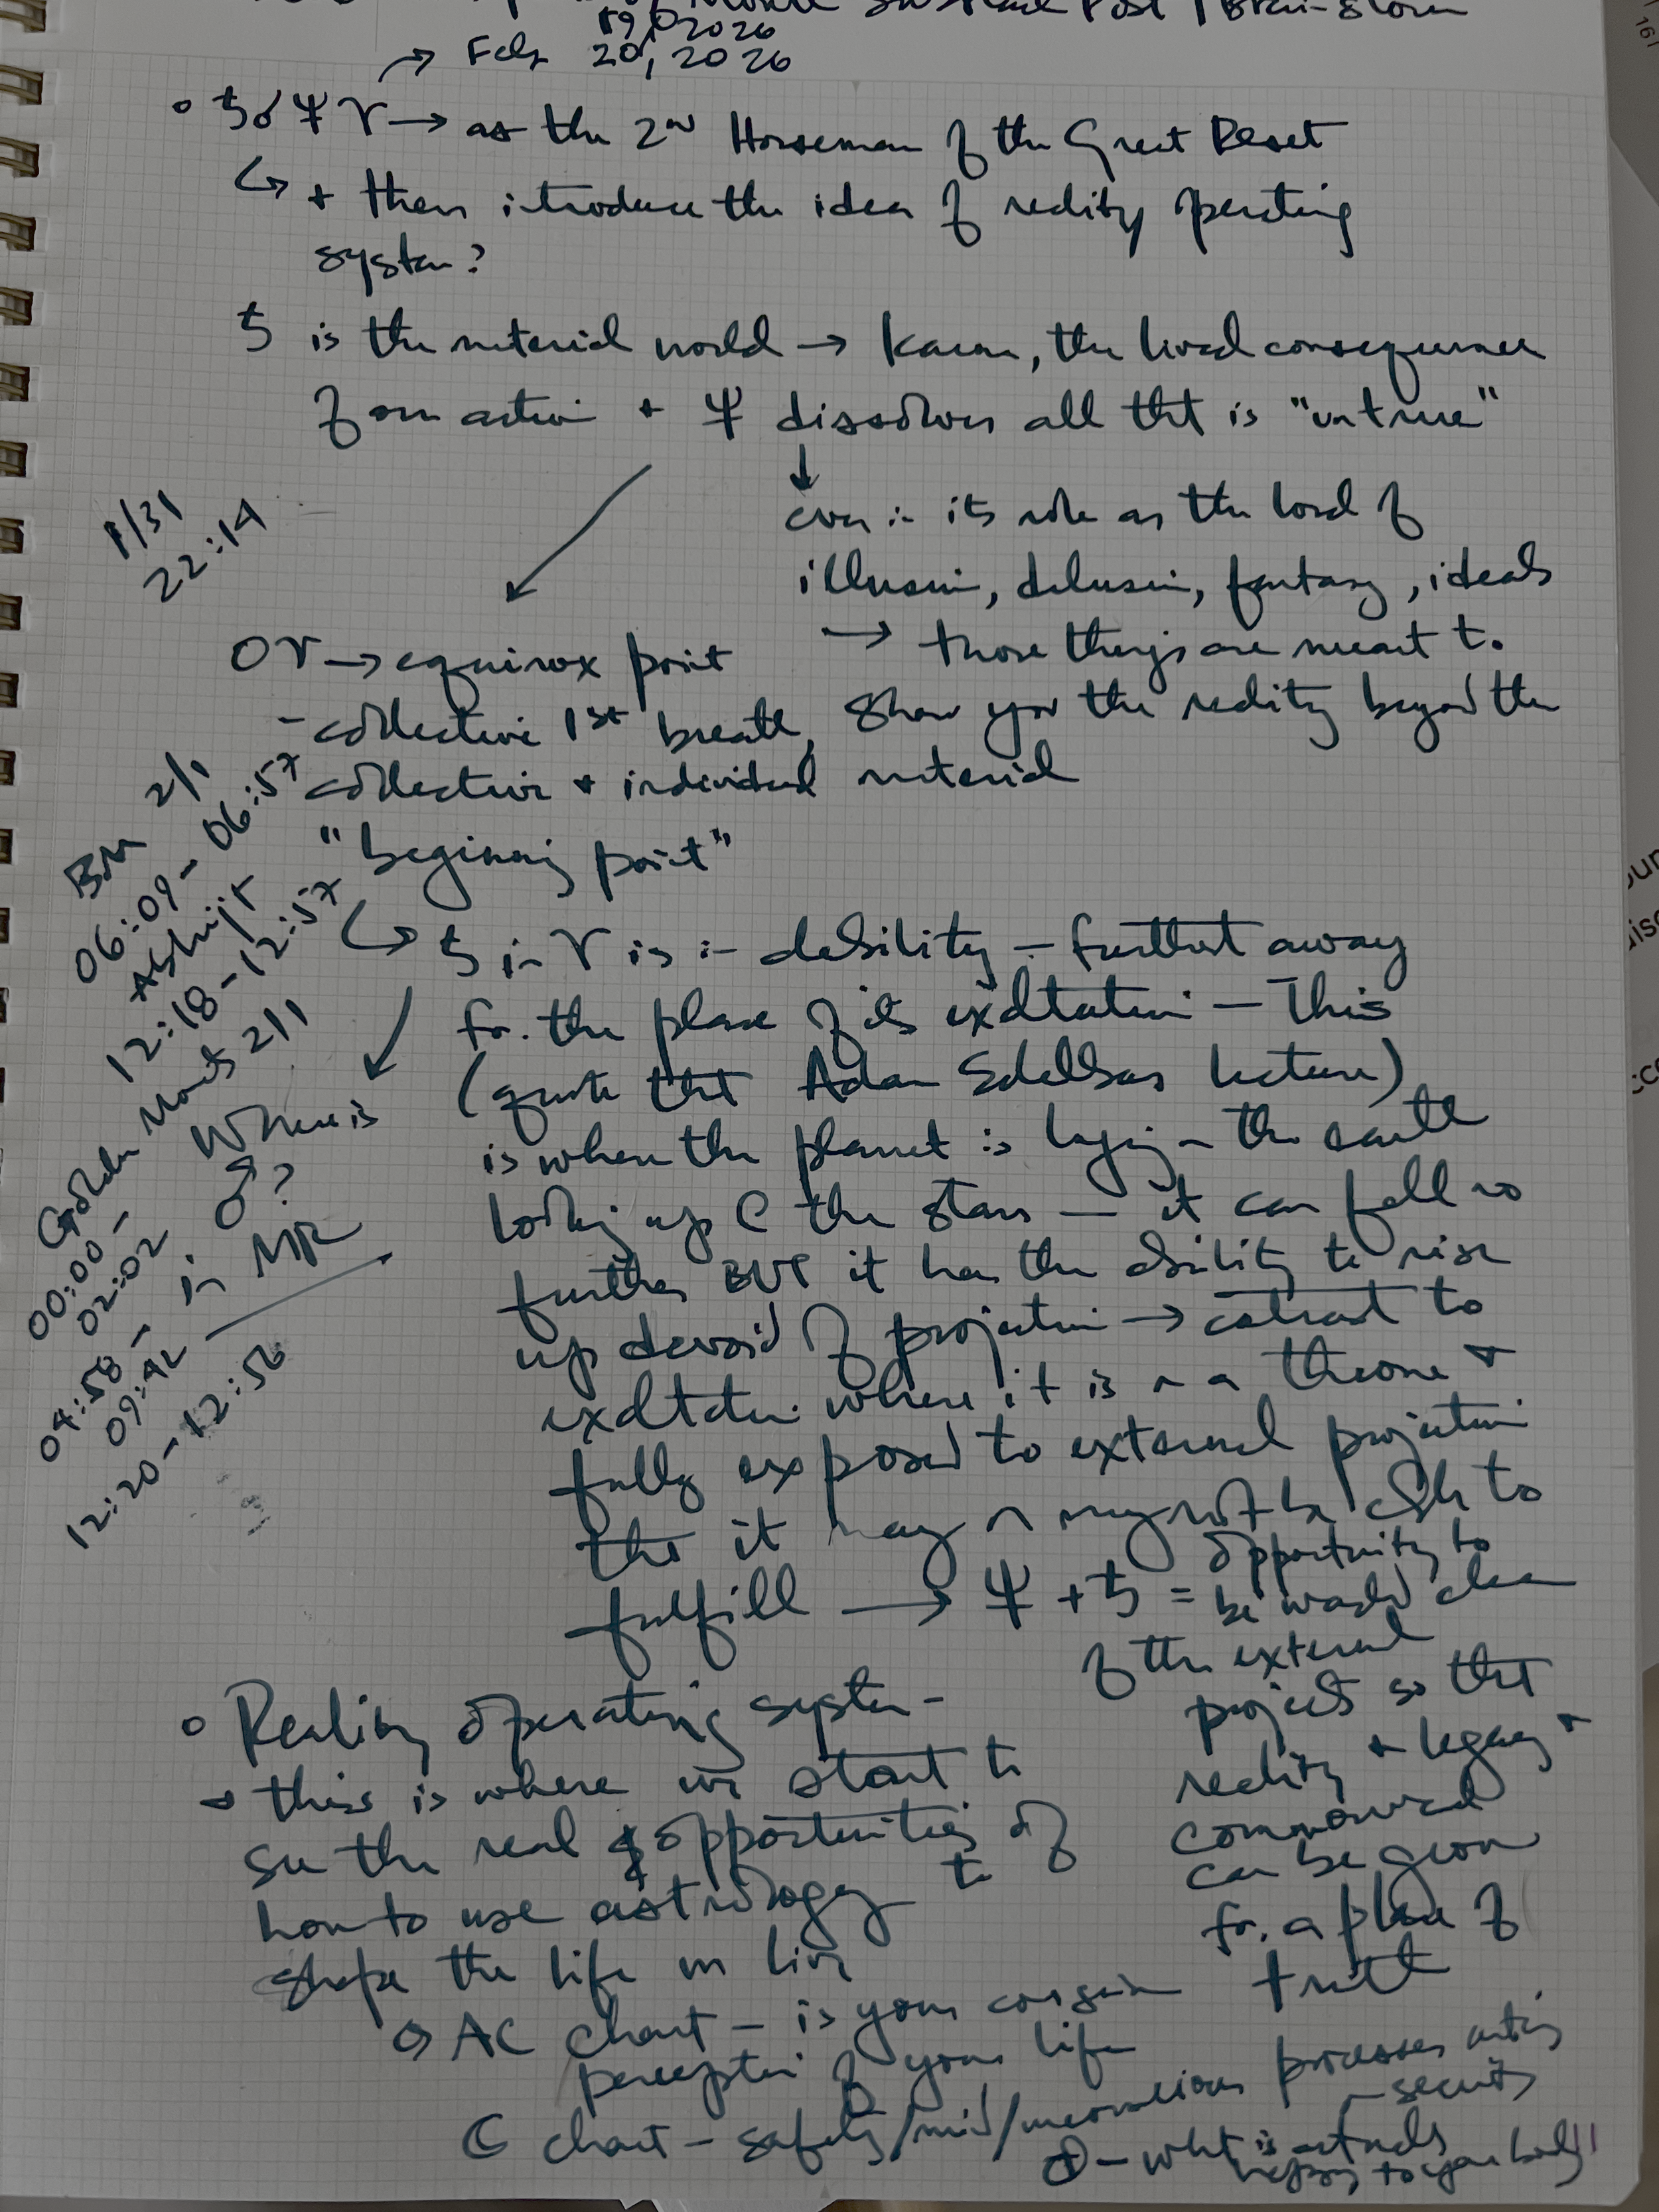 Substack Post / Brain-storm
19, 2026
→ Feb 20, 2026
◦ ♄☌♆♈ → as the 2nd Horseman of the Great Reset
↳ + then introduce the idea of reality operating
system?
♄ is the material world → Karma, the lived consequence
of our action + ♆ dissolves all tht is "untrue"
↓
even in its role as the lord of
illusion, delusion, fantasy, ideals
→ those things are meant to
show you the reality beyond the
material
0♈ → equinox point
- collective 1st breath,
collective + individual
"beginning point"
↳ ♄ in ♈ is in debility – furthest away
fr. the place of its exaltation – This
(quote tht Adam lecture)
is when the planet is lying on the earth
looking up @ the stars — it can fall no
further BUT it has the ability to rise
up devoid of projection → contrast to
exaltation where it is on a throne +
fully exposed to external projection
tht it may or may not be able to
fulfill → ♆ + ♄ = opportunity to
be washed clean
of the external
projects so tht
reality + legacy +
can be grown
fr. a place of
truth
◦ Reality operating system –
→ this is where we start to
see the real & opportunities of
how to use astrology to
shape the life we live
↳ AC chart – is your conscious
perception of your life
☾ chart – safety/mind/unconscious processes
– security
⊕ – wht is actually
happening to your body!!
1/31
22:14
BM 2/1
06:09 – 06:57
Abhijit
12:18 – 12:57
Golden Monts 2/1
00:00 –
02:02
04:58 –
09:42
12:20 – 12:56
Where is
♂?
in MR